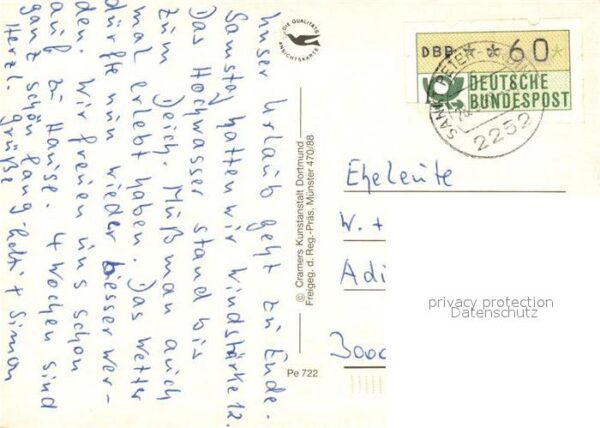 Unser Urlaub geht zu Ende.
Samstag hatten wir Windstärke 12.
Das Hochwasser stand bis
zum Deich. Muß man auch
mal erlebt haben. Das Wetter
dürfte nun wieder besser wer-
den. Wir freuen uns schon
auf zu Hause. 4 Wochen sind
ganz schön lang
Herzl. Grüße + Simon
DIE QUALITÄTS
ANSICHTSKARTE
© Cramers Kunstanstalt Dortmund
Freigeg. d. Reg.-Präs. Münster 470/88
Pe 722
DBP 60
DEUTSCHE
BUNDESPOST
SANKT PETER-
2252
Eheleute
W. +
Adi
3000
privacy protection
Datenschutz